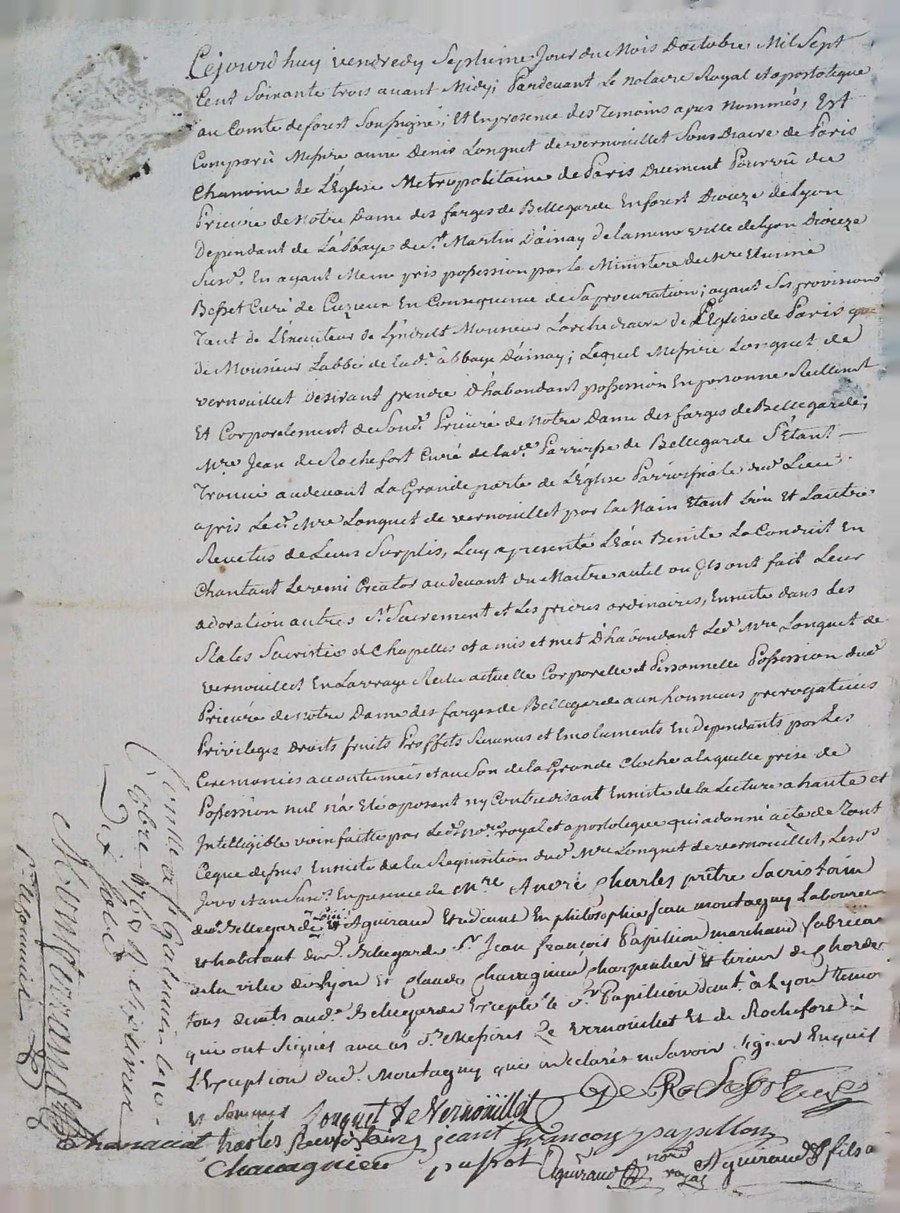 Cejourd huy vendredy Septiême Jour du Mois Doctobre Mil Sept
Cent Soixante trois avant Midy; Pardevant le Notaire Royal et apostolique
au Comté de forest Soussigné; Et En presence des Temoins apres Nommés, Est
Comparû Messire anne Denis Longuet de vernouillet Sous Diacre de Paris
Chanoine de L'Eglise Metropolitaine de Paris Duement Pourvû du
Prieuré de Notre Dame des farges de Bellegarde En forest Dioceze de Lyon
Dependant de L'abbaye de St. Martin D'ainay de la meme ville de Lyon Dioceze
Susd. En ayant Meme pris possession par le Ministere de Mre Etienne
Besset Curé de Cuzieux En Consequence de Sa procuration; ayant Ses provisions
Tant de L'Executeur de L'indult Monsieur Larchidiacre de L'Eglise de Paris que
De Monsieur Labbé de Lad. abbaye D'ainay; Lequel Messire Longuet de
vernouillet Desirant prendre D'habondant possession En personne Reellement
Et Corporelement de Sond. Prieuré de Notre Dame des farges de Bellegarde;
Mre Jean de Rochefort Curé de lad. Parroisse de Bellegarde S'Etant
Trouvé audevant La Grande porte de L'Eglise Parroissiale dud. Lieu
a pris Led. Mre Longuet de vernouillet par la Main Etant L'un Et Lautre
Revetus de Leurs Surplis, Luy a presenté L'Eau Benite La Conduit En
Chantant Le veni Creator audevant du Maitre autel ou Ils ont fait Leur
adoration au tres St. Sacrement et Les prieres ordinaires, Ensuite dans des
Stales Sacristie et Chapelles et a mis et met D'habondant Led. Mre Longuet de
vernouillet En La vraye Reelle actuelle Corporelle et Personnelle Possession dud.
Prieuré de Notre Dame des farges de Bellegarde aux honneurs prerogatives
Privileges Droits fruits Proffits Revenus et Emoluments En Dependants par Les
Ceremonies accoutumées et au Son de la Grande Cloche a laquelle prise de
Possession nul n'a Eté oposant ny Contredisant Ensuite de la Lecture a haute et
Intelligible voix faitte par Led. nore. royal et apostolique qui a donné acte de Tout
Ceque dessus Ensuite de la Requisition dud. Mre Longuet de vernouillet, Lesd.
Jour et an Susd. En presence de Mre André Charles prêtre Sacristain
dud. Bellegarde Aguiraud Etudiant En philosophie Jean montagny Laboureur
et habitant dud. Bellegarde Sr. Jean françois Papillion marchand fabricant
de la ville de Lyon Et Claude Chavagnieu Charpentier Et tireur de Chorde
tous dud. Bellegarde Excepté le Sr. Papillion dud. a Lyon temoins
qui ont Signés avec les Messires De Vernouillet Et de Rochefort à
L'Exception dud. Montagny qui a declaré ne Savoir Signer Enquis
Et Sommés
De Rochefort Curé
Longuet De Vernoüillet
Charles Sacristain
françois papillon
Chavagnieu
Aguiraud nore royal
Aguiraud fils
Controllé a St Galmier le
8bre 1763